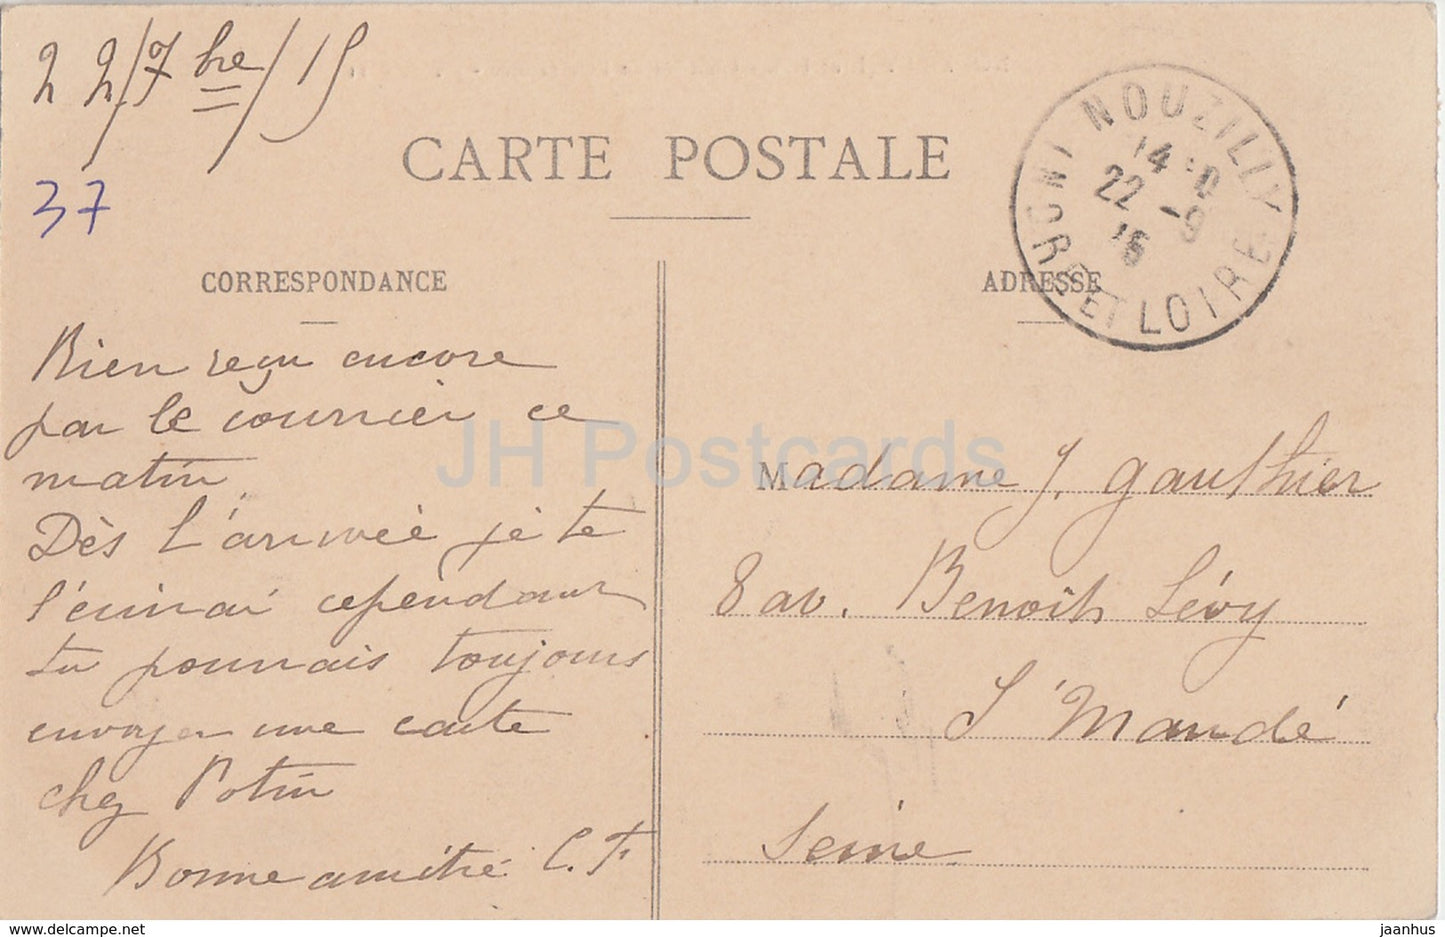 22/7bre/15
CARTE POSTALE
37
NOUZILLY
14-0
22-9
15
INDRE ET LOIRE
CORRESPONDANCE
ADRESSE
Bien reçu encore
par le courrier ce
matin
Dès l'arrivée je te
l'écrirai cependant
tu pourrais toujours
envoyer une carte
chez Potin
Bonne amitié C. F
Madame J. Gauthier
8 av. Benoit Lévy
St Mandé
Seine
JH Postcards
www.delcampe.net
jaanhus